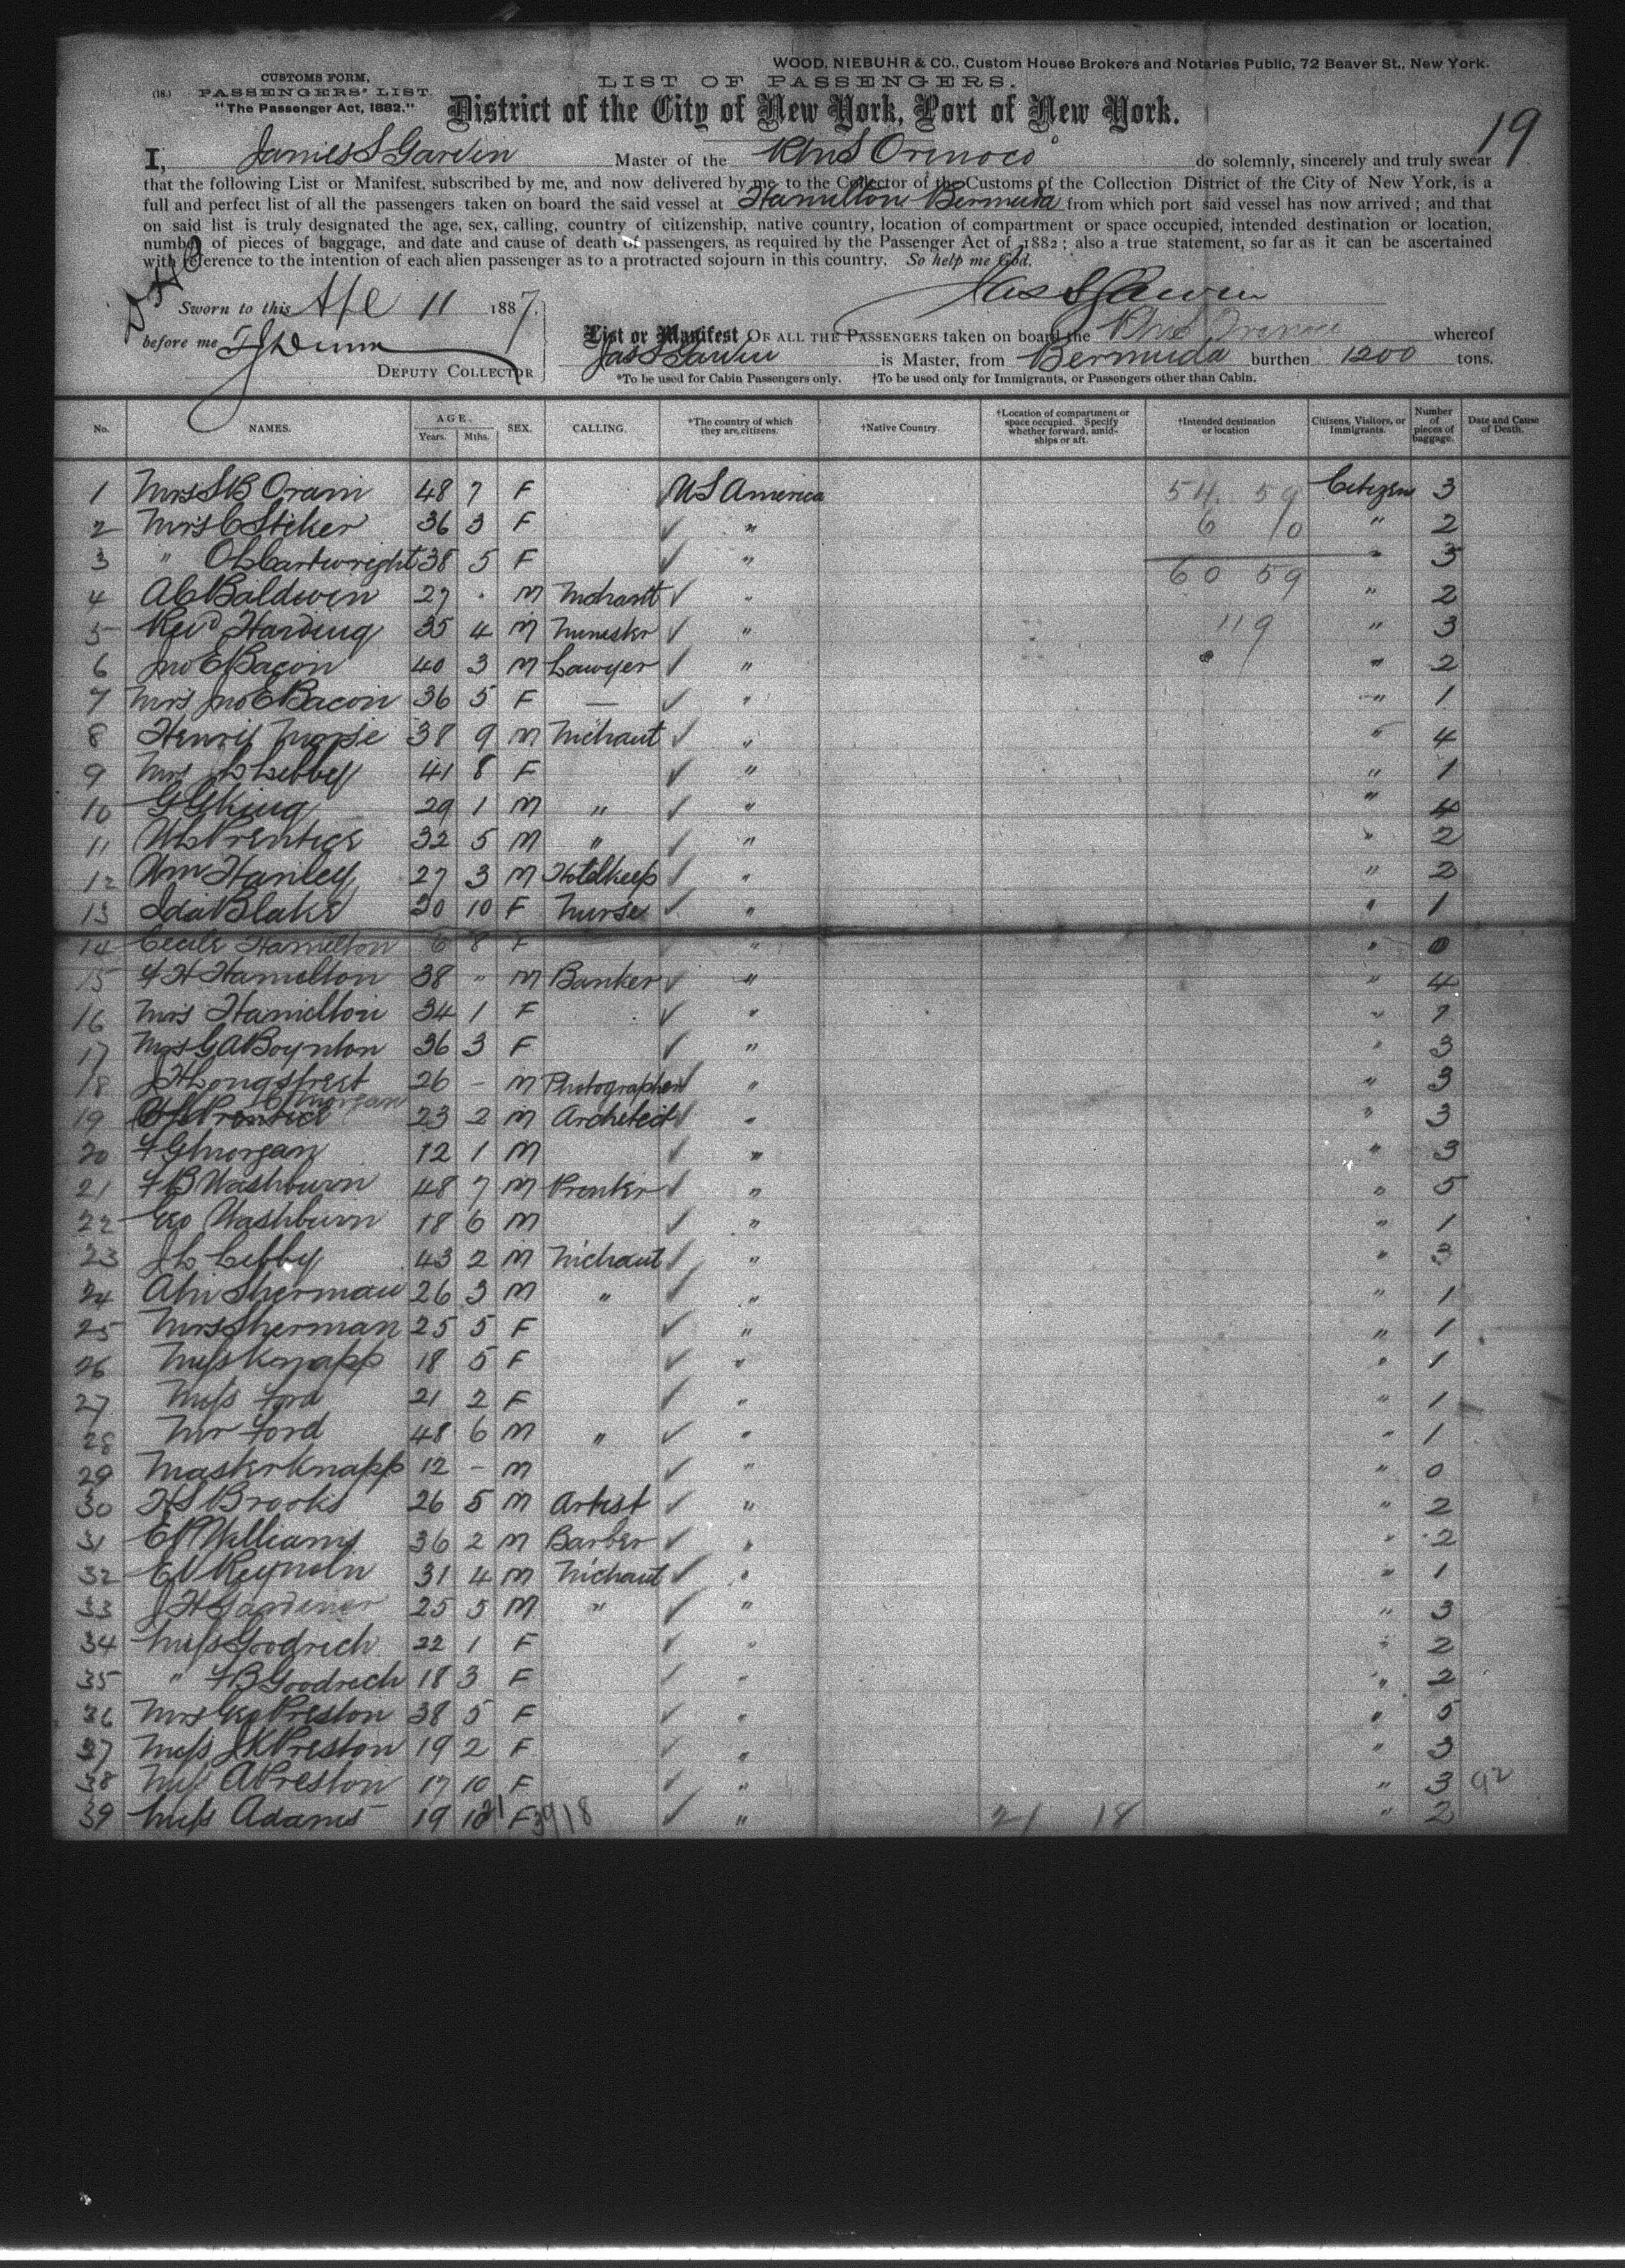 WOOD, NIEBUHR & CO., Custom House Brokers and Notaries Public, 72 Beaver St., New York.
(18.) CUSTOMS FORM,
PASSENGERS' LIST.
"The Passenger Act, 1882."
LIST OF PASSENGERS.
District of the City of New York, Port of New York.
19
I, James S Garvin Master of the RMS Orinoco do solemnly, sincerely and truly swear
that the following List or Manifest, subscribed by me, and now delivered by me to the Collector of the Customs of the Collection District of the City of New York, is a
full and perfect list of all the passengers taken on board the said vessel at Hamilton Bermuda from which port said vessel has now arrived; and that
on said list is truly designated the age, sex, calling, country of citizenship, native country, location of compartment or space occupied, intended destination or location,
number of pieces of baggage, and date and cause of death of passengers, as required by the Passenger Act of 1882; also a true statement, so far as it can be ascertained
with reference to the intention of each alien passenger as to a protracted sojourn in this country. So help me God.
Jas S Garvin
Sworn to this Apl 11 1887.
before me
DEPUTY COLLECTOR
List or Manifest OF ALL THE PASSENGERS taken on board the RMS Orinoco whereof
Jas S Garvin is Master, from Bermuda burthen 1200 tons.
*To be used for Cabin Passengers only. †To be used only for Immigrants, or Passengers other than Cabin.
No. NAMES. AGE. Years. Mths. SEX. CALLING. *The country of which they are citizens. †Native Country. †Location of compartment or space occupied. Specify whether forward, amidships or aft. †Intended destination or location Citizens, Visitors, or Immigrants. Number of pieces of baggage. Date and Cause of Death.
1 Mrs S B Oram 48 7 F US America 54 59 Citizens 3
2 Mrs C Stiker 36 3 F " 6 10 " 2
3 " O L Cartwright 38 5 F " " 3
60 59
4 A C Baldwin 27 " M Mchant " " 2
5 Revd Harding 35 4 M Minister " 119 " 3
6 Jno E Bacon 40 3 M Lawyer " " 2
7 Mrs Jno E Bacon 36 5 F — " " 1
8 Henry Morse 38 9 M Mchant " " 4
9 Mrs L Libby 41 8 F " " 1
10 G G King 29 1 M " " " 4
11 Prentice 32 5 M " " " 2
12 Wm Hanley 27 3 M Hotelkeep " " 2
13 Ida Blake 30 10 F Nurse " " 1
14 Cecile Hamilton 6 8 F " " 0
15 F H Hamilton 38 " M Banker " " 4
16 Mrs Hamilton 34 1 F " " 7
17 Mrs G A Boynton 36 3 F " " 3
18 J H Longstreet 26 - M Photographer " " 3
19 Morgan 23 2 M Architect " " 3
20 F G Morgan 12 1 M " " 3
21 F B Washburn 48 7 M Printer " " 5
22 Geo Washburn 18 6 M " " 1
23 J L Libby 43 2 M Mchant " " 3
24 Sherman 26 3 M " " " 1
25 Mrs Sherman 25 5 F " " 1
26 Miss Knapp 18 5 F " " 1
27 Miss Ford 21 2 F " " 1
28 Mr Ford 48 6 M " " " 1
29 Master Knapp 12 - M " " 0
30 H S Brooks 26 5 M Artist " " 2
31 E P Williams 36 2 M Barber " " 2
32 Reynoln 31 4 M Mchant " " 1
33 J H Gardener 25 5 M " " " 3
34 Miss Goodrich 22 1 F " " 2
35 " F B Goodrich 18 3 F " " 2
36 Mrs Geo Preston 38 5 F " " 5
37 Miss J K Preston 19 2 F " " 3
38 Miss A Preston 17 10 F " " 3 92
39 Miss Adams 19 10 F " 21 18 " 2